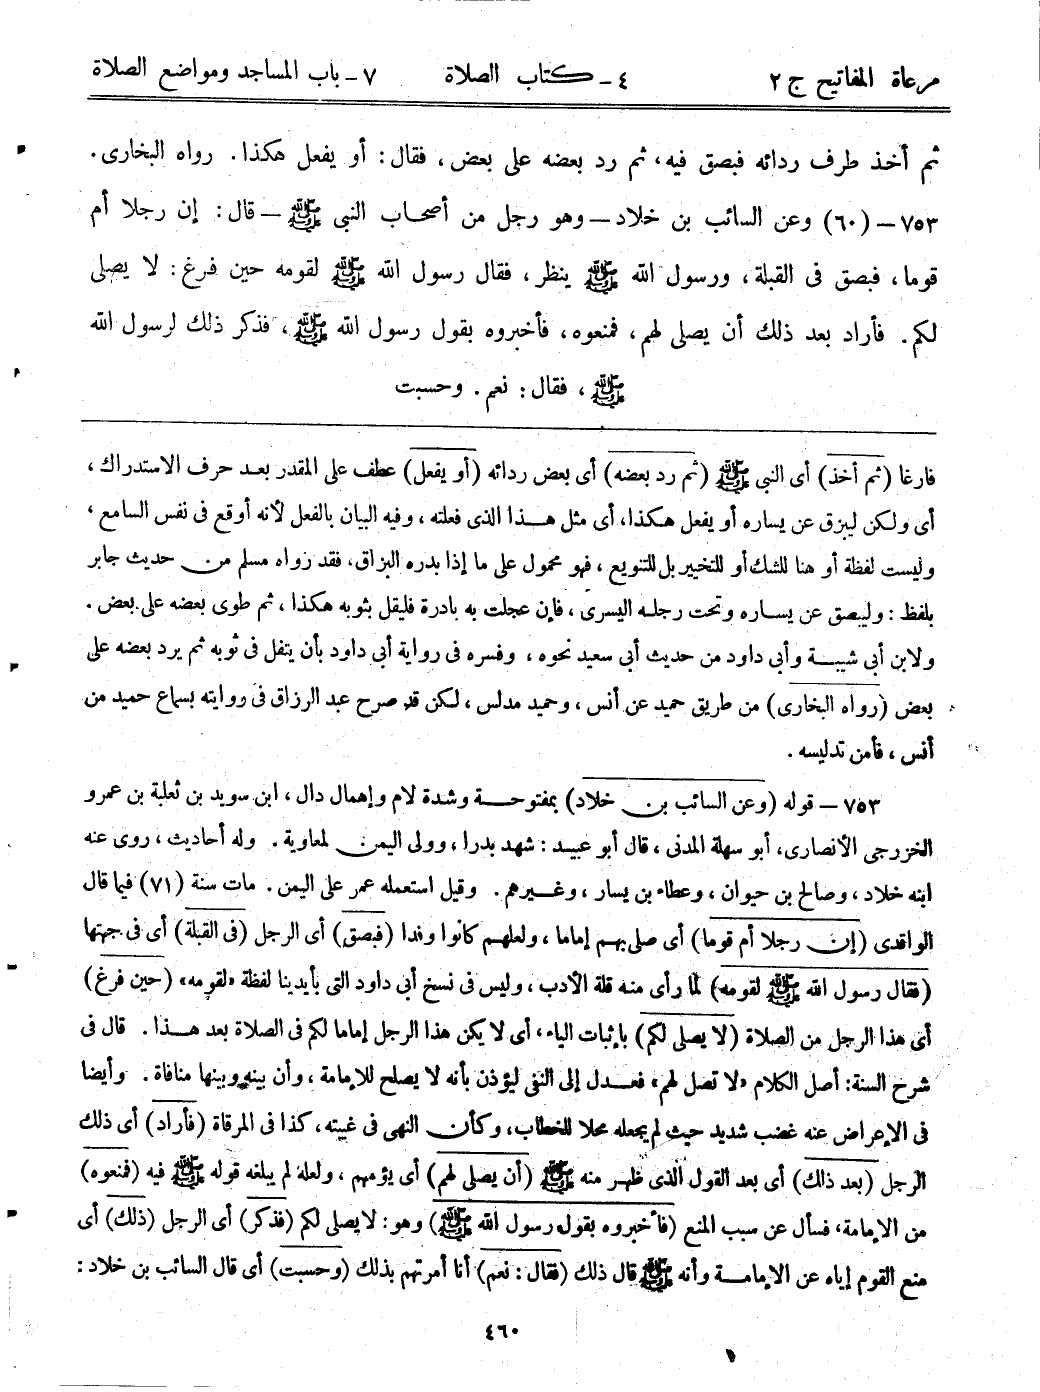 مرعاة المفاتيح ج ٢ ٤ ـ كتاب الصلاة ٧ ـ باب المساجد ومواضع الصلاة
ثم أخذ طرف ردائه فبصق فيه، ثم رد بعضه على بعض، فقال: أو يفعل هكذا. رواه البخارى.
٧٥٣ – (٦٠) وعن السائب بن خلاد – وهو رجل من أصحاب النبى ﷺ – قال: إن رجلا أم
قوما، فبصق فى القبلة، ورسول الله ﷺ ينظر، فقال رسول الله ﷺ لقومه حين فرغ: لا يصلى
لكم. فأراد بعد ذلك أن يصلى لهم، فمنعوه، فأخبروه بقول رسول الله ﷺ، فذكر ذلك لرسول الله
ﷺ، فقال: نعم. وحسبت
فارغا (ثم أخذ) أى النبى ﷺ (ثم رد بعضه) أى بعض ردائه (أو يفعل) عطف على المقدر بعد حرف الاستدراك،
أى ولكن ليبزق عن يساره أو يفعل هكذا، أى مثل هذا الذى فعلته، وفيه البيان بالفعل لأنه أوقع فى نفس السامع،
وليست لفظة أو هنا للشك أو للتخيير بل للتنويع، فهو محمول على ما إذا بدره البزاق، فقد رواه مسلم من حديث جابر
بلفظ: وليبصق عن يساره وتحت رجله اليسرى، فإن عجلت به بادرة فليقل بثوبه هكذا، ثم طوى بعضه على بعض.
ولابن أبى شيبة وأبى داود من حديث أبى سعيد نحوه، وفسره فى رواية أبى داود بأن يتفل فى ثوبه ثم يرد بعضه على
بعض (رواه البخارى) من طريق حميد عن أنس، وحميد مدلس، لكن قد صرح عبد الرزاق فى روايته بسماع حميد من
أنس، فأمن تدليسه.
٧٥٣ – قوله (وعن السائب بن خلاد) بمفتوحة وشدة لام وإهمال دال، ابن سويد بن ثعلبة بن عمرو
الخزرجى الأنصارى، أبو سهلة المدنى، قال أبو عبيد: شهد بدرا، وولى اليمن لمعاوية. وله أحاديث، روى عنه
ابنه خلاد، وصالح بن حيوان، وعطاء بن يسار، وغيرهم. وقيل استعمله عمر على اليمن. مات سنة (٧١) فيما قال
الواقدى (إن رجلا أم قوما) أى صلى بهم إماما، ولعلهم كانوا وفدا (فبصق) أى الرجل (فى القبلة) أى فى جهتها
(فقال رسول الله ﷺ لقومه) لما رأى منه قلة الأدب، وليس فى نسخ أبى داود التى بأيدينا لفظة «لقومه» (حين فرغ)
أى هذا الرجل من الصلاة (لا يصلى لكم) بإثبات الياء، أى لا يكن هذا الرجل إماما لكم فى الصلاة بعد هذا. قال فى
شرح السنة: أصل الكلام «لا تصل لهم» فعدل إلى النفى ليؤذن بأنه لا يصلح للإمامة، وأن بينه وبينها منافاة. وأيضا
فى الإعراض عنه غضب شديد حيث لم يجعله محلا للخطاب، وكأن النهى فى غيبته، كذا فى المرقاة (فأراد) أى ذلك
الرجل (بعد ذلك) أى بعد القول الذى ظهر منه ﷺ (أن يصلى لهم) أى يؤمهم، ولعله لم يبلغه قوله ﷺ فيه (فمنعوه)
من الإمامة، فسأل عن سبب المنع (فأخبروه بقول رسول الله ﷺ) وهو: لا يصلى لكم (فذكر) أى الرجل (ذلك) أى
منع القوم إياه عن الإمامة وأنه ﷺ قال ذلك (فقال: نعم) أنا أمرتهم بذلك (وحسبت) أى قال السائب بن خلاد:
٤٦٠